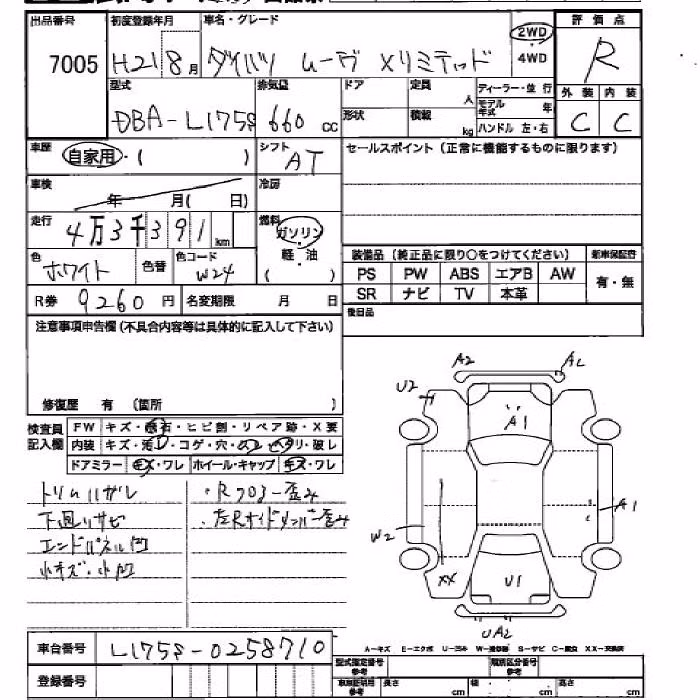 出品番号 初度登録年月 車名・グレード 評価点
7005 H21 8月 ダイハツ ムーヴ Xリミテッド 2WD ・ 4WD R
型式 排気量 ドア 定員 人 ディーラー・並行 外装 内装
DBA-L175S 660 cc 形状 積載 kg モデル年式 年 C C
ハンドル 左・右
車歴 自家用・( ) シフト AT セールスポイント(正常に機能するものに限ります)
車検 年 月( 日) 冷房
走行 4万3千391 km 燃料 ガソリン
軽油
( )
色 ホワイト 色替 色コード W24
装備品(純正品に限り○をつけてください) 新車保証書
PS PW ABS エアB AW 有・無
SR ナビ TV 本革
R券 9260円 名変期限 月 日 後日品
注意事項申告欄(不具合内容等は具体的に記入して下さい)
修復歴 有 (箇所 )
検査員記入欄 FW キズ・飛石・ヒビ割・リペア跡・X要
内装 キズ・汚レ・コゲ・穴・スレ・ヘタリ・破レ
ドアミラー キズ・ワレ ホイール・キャップ キズ・ワレ
トリムハガレ ・Rフロ-歪み
下廻りサビ ・左Rサイドメンバー歪み
エンドパネル凹
小キズ・小凹
A2 AL
U2
A1
A1
W2
XX U1
UA2
A-キズ E-エクボ U-凹み W-補修跡 S-サビ C-腐食 XX-交換済
車台番号 L175S-0258710
登録番号
型式指定番号 参考 類別区分番号 参考
車庫証明用 参考 長さ cm 幅 cm 高さ cm